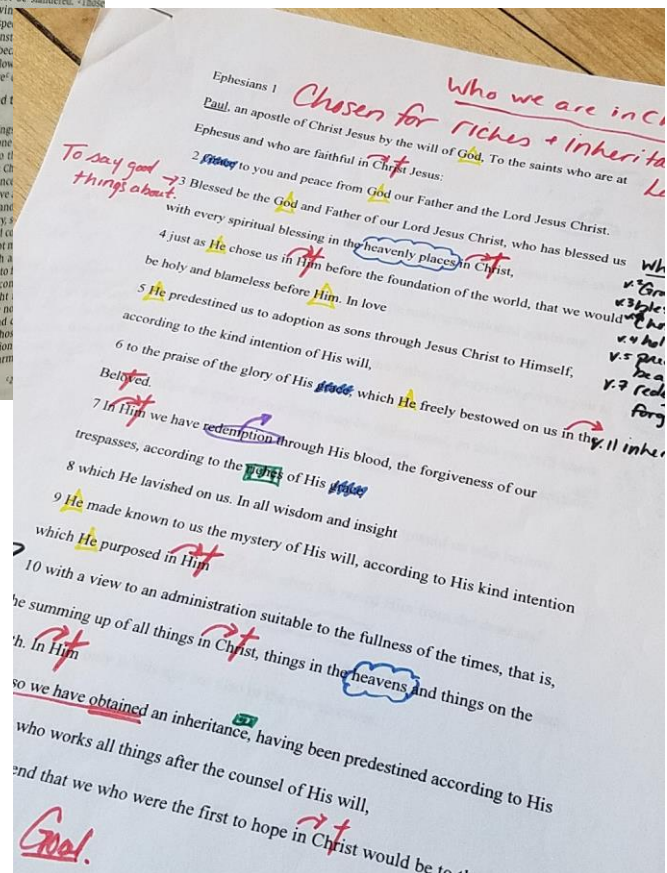 Ephesians 1
Who we are in C
Chosen for riches + inherita
Paul, an apostle of Christ Jesus by the will of God, To the saints who are at
Ephesus and who are faithful in Christ Jesus:
2 to you and peace from God our Father and the Lord Jesus Christ.
To say good
things about.
3 Blessed be the God and Father of our Lord Jesus Christ, who has blessed us
with every spiritual blessing in the heavenly places in Christ,
4 just as He chose us in Him before the foundation of the world, that we would
be holy and blameless before Him. In love
5 He predestined us to adoption as sons through Jesus Christ to Himself,
according to the kind intention of His will,
6 to the praise of the glory of His grace, which He freely bestowed on us in the
Beloved.
v.4 hol
v.7 rede
forg
v.11 inher
7 In Him we have redemption through His blood, the forgiveness of our
trespasses, according to the riches of His grace
8 which He lavished on us. In all wisdom and insight
9 He made known to us the mystery of His will, according to His kind intention
which He purposed in Him
10 with a view to an administration suitable to the fullness of the times, that is,
he summing up of all things in Christ, things in the heavens and things on the
th. In Him
so we have obtained an inheritance, having been predestined according to His
who works all things after the counsel of His will,
end that we who were the first to hope in Christ would be to th
Goal.